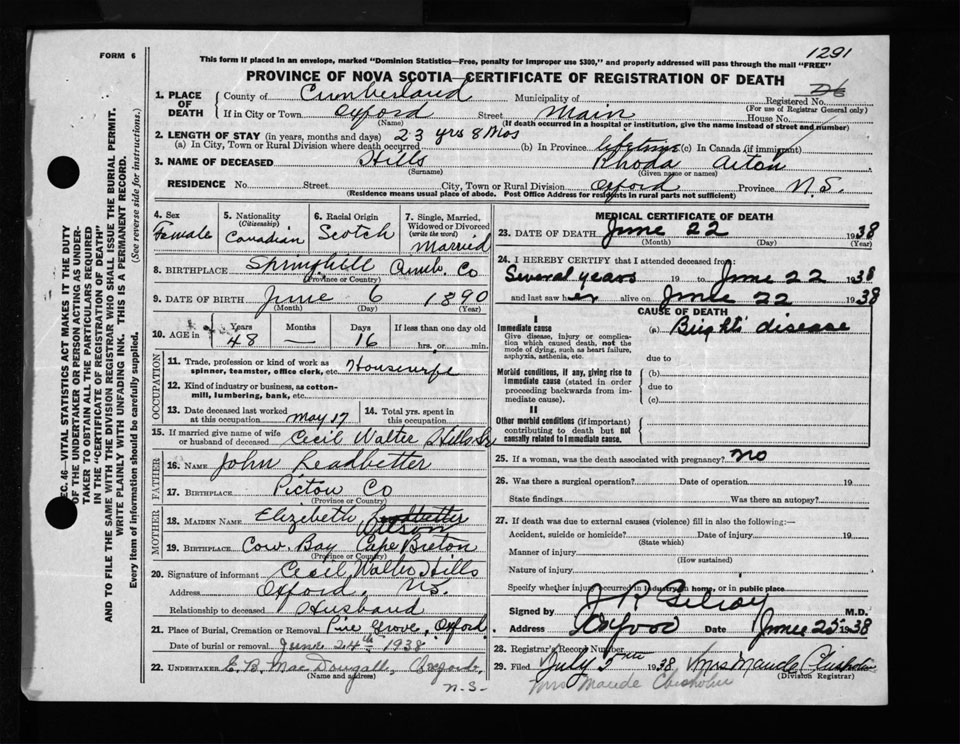 FORM 6
1291
This form if placed in an envelope, marked "Dominion Statistics—Free, penalty for improper use $300," and properly addressed will pass through the mail "FREE"
PROVINCE OF NOVA SCOTIA—CERTIFICATE OF REGISTRATION OF DEATH
SEC. 46—VITAL STATISTICS ACT MAKES IT THE DUTY
OF THE UNDERTAKER OR PERSON ACTING AS UNDER-
TAKER TO OBTAIN ALL THE PARTICULARS REQUIRED
IN THE "CERTIFICATE OF REGISTRATION OF DEATH"
AND TO FILE THE SAME WITH THE DIVISION REGISTRAR WHO SHALL ISSUE THE BURIAL PERMIT.
WRITE PLAINLY WITH UNFADING INK. THIS IS A PERMANENT RECORD.
Every item of information should be carefully supplied. (See reverse side for instructions.)
1. PLACE OF DEATH
County of Cumberland Municipality of Registered No.
(For use of Registrar General only)
If in City or Town Oxford Street Main House No.
(Name) (If death occurred in a hospital or institution, give the name instead of street and number)
2. LENGTH OF STAY (in years, months and days) 23 yrs 8 Mos
(a) In City, Town or Rural Division where death occurred (b) In Province lifetime (c) In Canada (if immigrant)
3. NAME OF DECEASED Hills Rhoda Aiton
(Surname) (Given name or names)
RESIDENCE No. Street City, Town or Rural Division Oxford Province N.S.
(Residence means usual place of abode. Post Office Address for residents in rural parts not sufficient)
4. Sex Female
5. Nationality (Citizenship) Canadian
6. Racial Origin Scotch
7. Single, Married, Widowed or Divorced (write the word) Married
8. BIRTHPLACE Springhill Cumb. Co
(Province or Country)
9. DATE OF BIRTH June 6 1890
(Month) (Day) (Year)
10. AGE in Years Months Days If less than one day old
48 — 16 hrs. or min.
OCCUPATION
11. Trade, profession or kind of work as spinner, teamster, office clerk, etc. Housewife
12. Kind of industry or business, as cotton-mill, lumbering, bank, etc.
13. Date deceased last worked at this occupation May 17
14. Total yrs. spent in this occupation
15. If married give name of wife or husband of deceased Cecil Walter Hills Sr
FATHER
16. NAME John Leadbetter
17. BIRTHPLACE Pictou Co
(Province or Country)
MOTHER
18. MAIDEN NAME Elizebeth Wilson
19. BIRTHPLACE Cow Bay Cape Breton
(Province or Country)
20. Signature of informant Cecil Walter Hills
Address Oxford, N.S.
Relationship to deceased Husband
21. Place of Burial, Cremation or Removal Pine Grove, Oxford
Date of burial or removal June 24th 1938
22. UNDERTAKER E. B. MacDougall, Oxford
(Name and address)
N.S.
MEDICAL CERTIFICATE OF DEATH
23. DATE OF DEATH June 22 1938
(Month) (Day) (Year)
24. I HEREBY CERTIFY that I attended deceased from:
Several years 19 to June 22 1938
and last saw her alive on June 22 1938
CAUSE OF DEATH
I
Immediate cause (a) Brights disease
Give disease, injury or complica-
tion which caused death, not the
mode of dying, such as heart failure,
asphyxia, asthenia, etc. due to
Morbid conditions, if any, giving rise to (b)
immediate cause (stated in order due to
proceeding backwards from im-
mediate cause). (c)
II
Other morbid conditions (if important)
contributing to death but not
causally related to immediate cause.
25. If a woman, was the death associated with pregnancy? No
26. Was there a surgical operation? Date of operation 19
State findings Was there an autopsy?
27. If death was due to external causes (violence) fill in also the following:—
Accident, suicide or homicide? Date of injury 19
(State which)
Manner of injury
(How sustained)
Nature of injury
Specify whether injury occurred in industry, in home, or in public place
Signed by J R Gilroy M.D.
Address Oxford Date June 25 1938
28. Registrar's Record Number
29. Filed July 5th 1938 Mrs Maude Chisholm
(Division Registrar)
Mrs Maude Chisholm